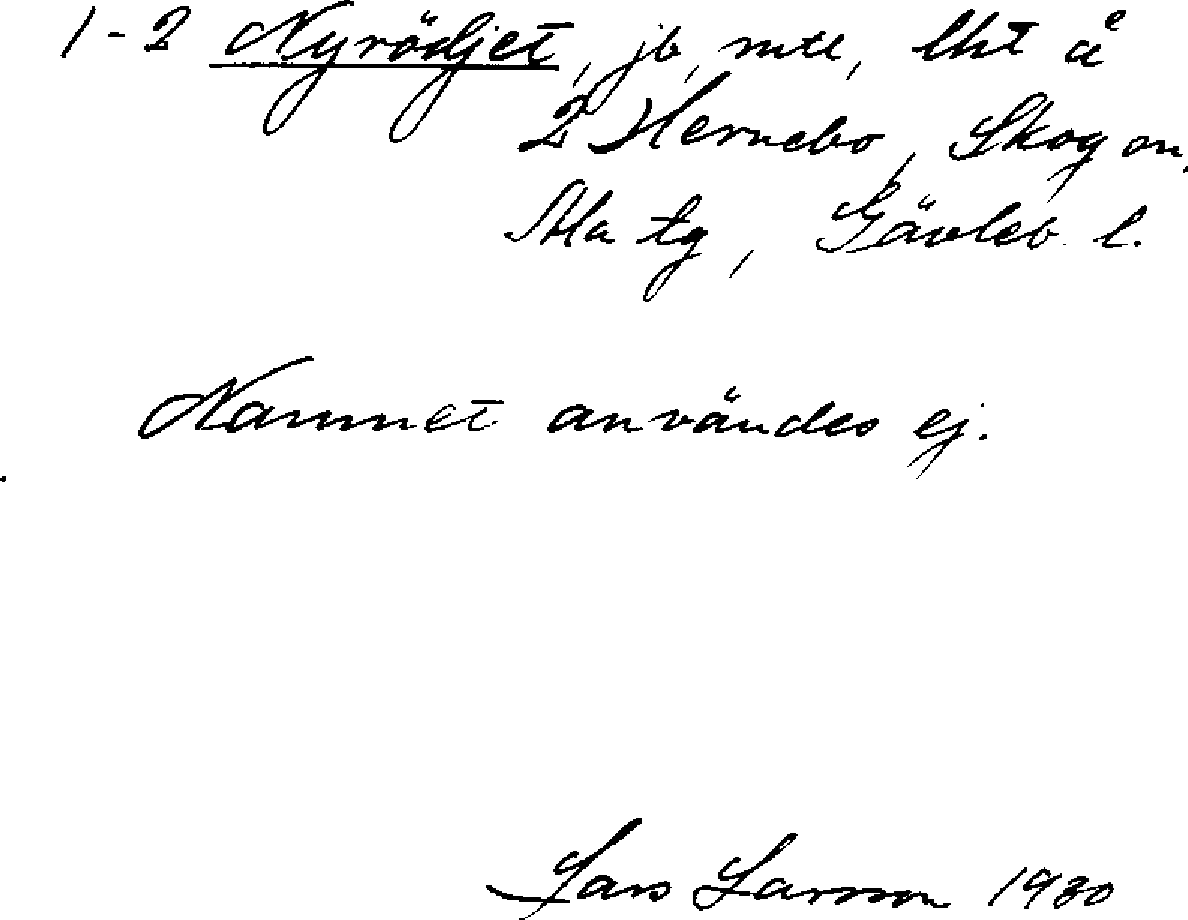 1-2 Nyrödjet, jb, mtl, lht å
2 Hernebo, Skog sn,
Ala tg, Gävleb. l.
Namnet användes ej.
Lars Larsson 1930